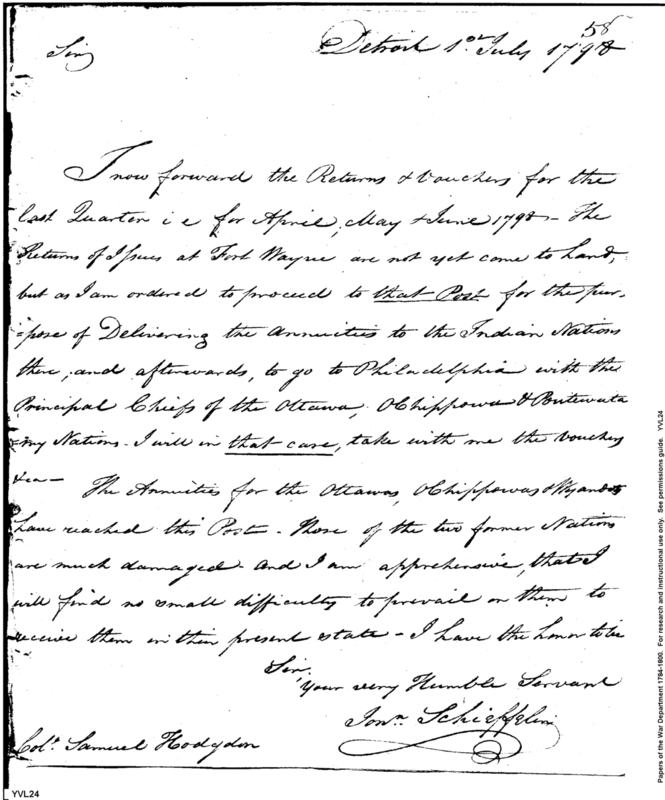 58
Sir
Detroit 1st July 1798
I now forward the Returns & Vouchers for the
last Quarter i e for April, May & June 1798 - The
Returns of Issues at Fort Wayne are not yet come to hand,
but as I am ordered to proceed to that Post for the pur-
=pose of Delivering the Annuities to the Indian Nations
there, and afterwards, to go to Philadelphia with the
Principal Chiefs of the Ottawa, OChippowa & Putewata
=my Nations - I will in that case, take with me the Vouchers
&ca -
The Annuities for the Ottawas, OChippowas & Wyandots
have reached this Post - those of the two former Nations
are much damaged - and I am apprehensive, that I
will find no small difficulty to prevail on them to
receive them in their present state - I have the honor to be
Sir,
Your very Humble Servant
Jonn. Schieffelin
Colo. Samuel Hodgdon
YVL24
Papers of the War Department 1784-1800. For research and instructional use only. See permissions guide. YVL24